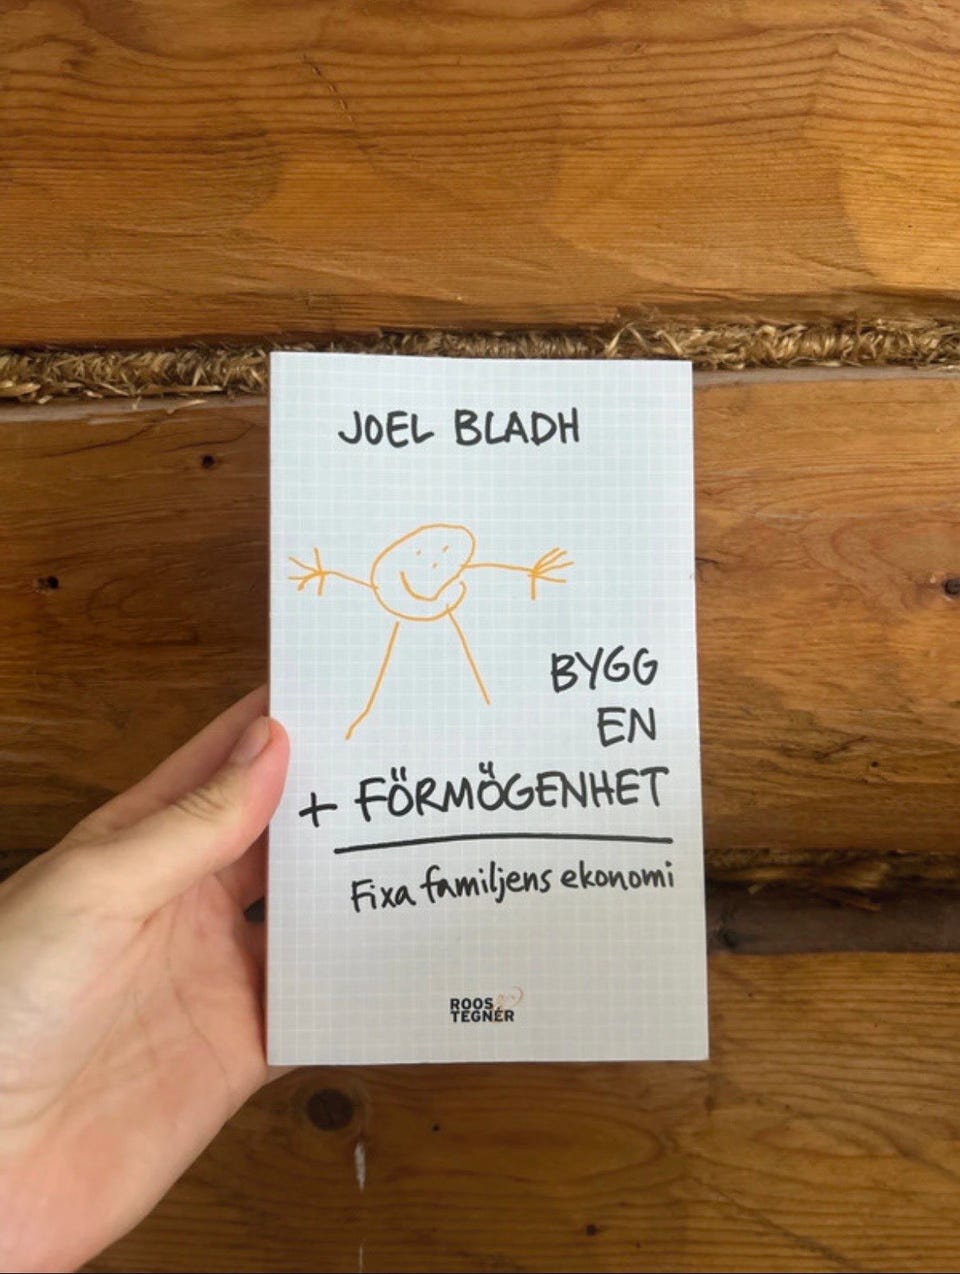 JOEL BLADH
BYGG
EN
+ FÖRMÖGENHET
Fixa familjens ekonomi
ROOS
TEGNÉR